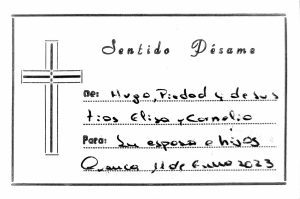 Sentido Pésame
De: Hugo, Piedad y de sus
tios Elisa y Cornelio
Para: Su esposa e hijos
Cuenca 11 de Enero 2023